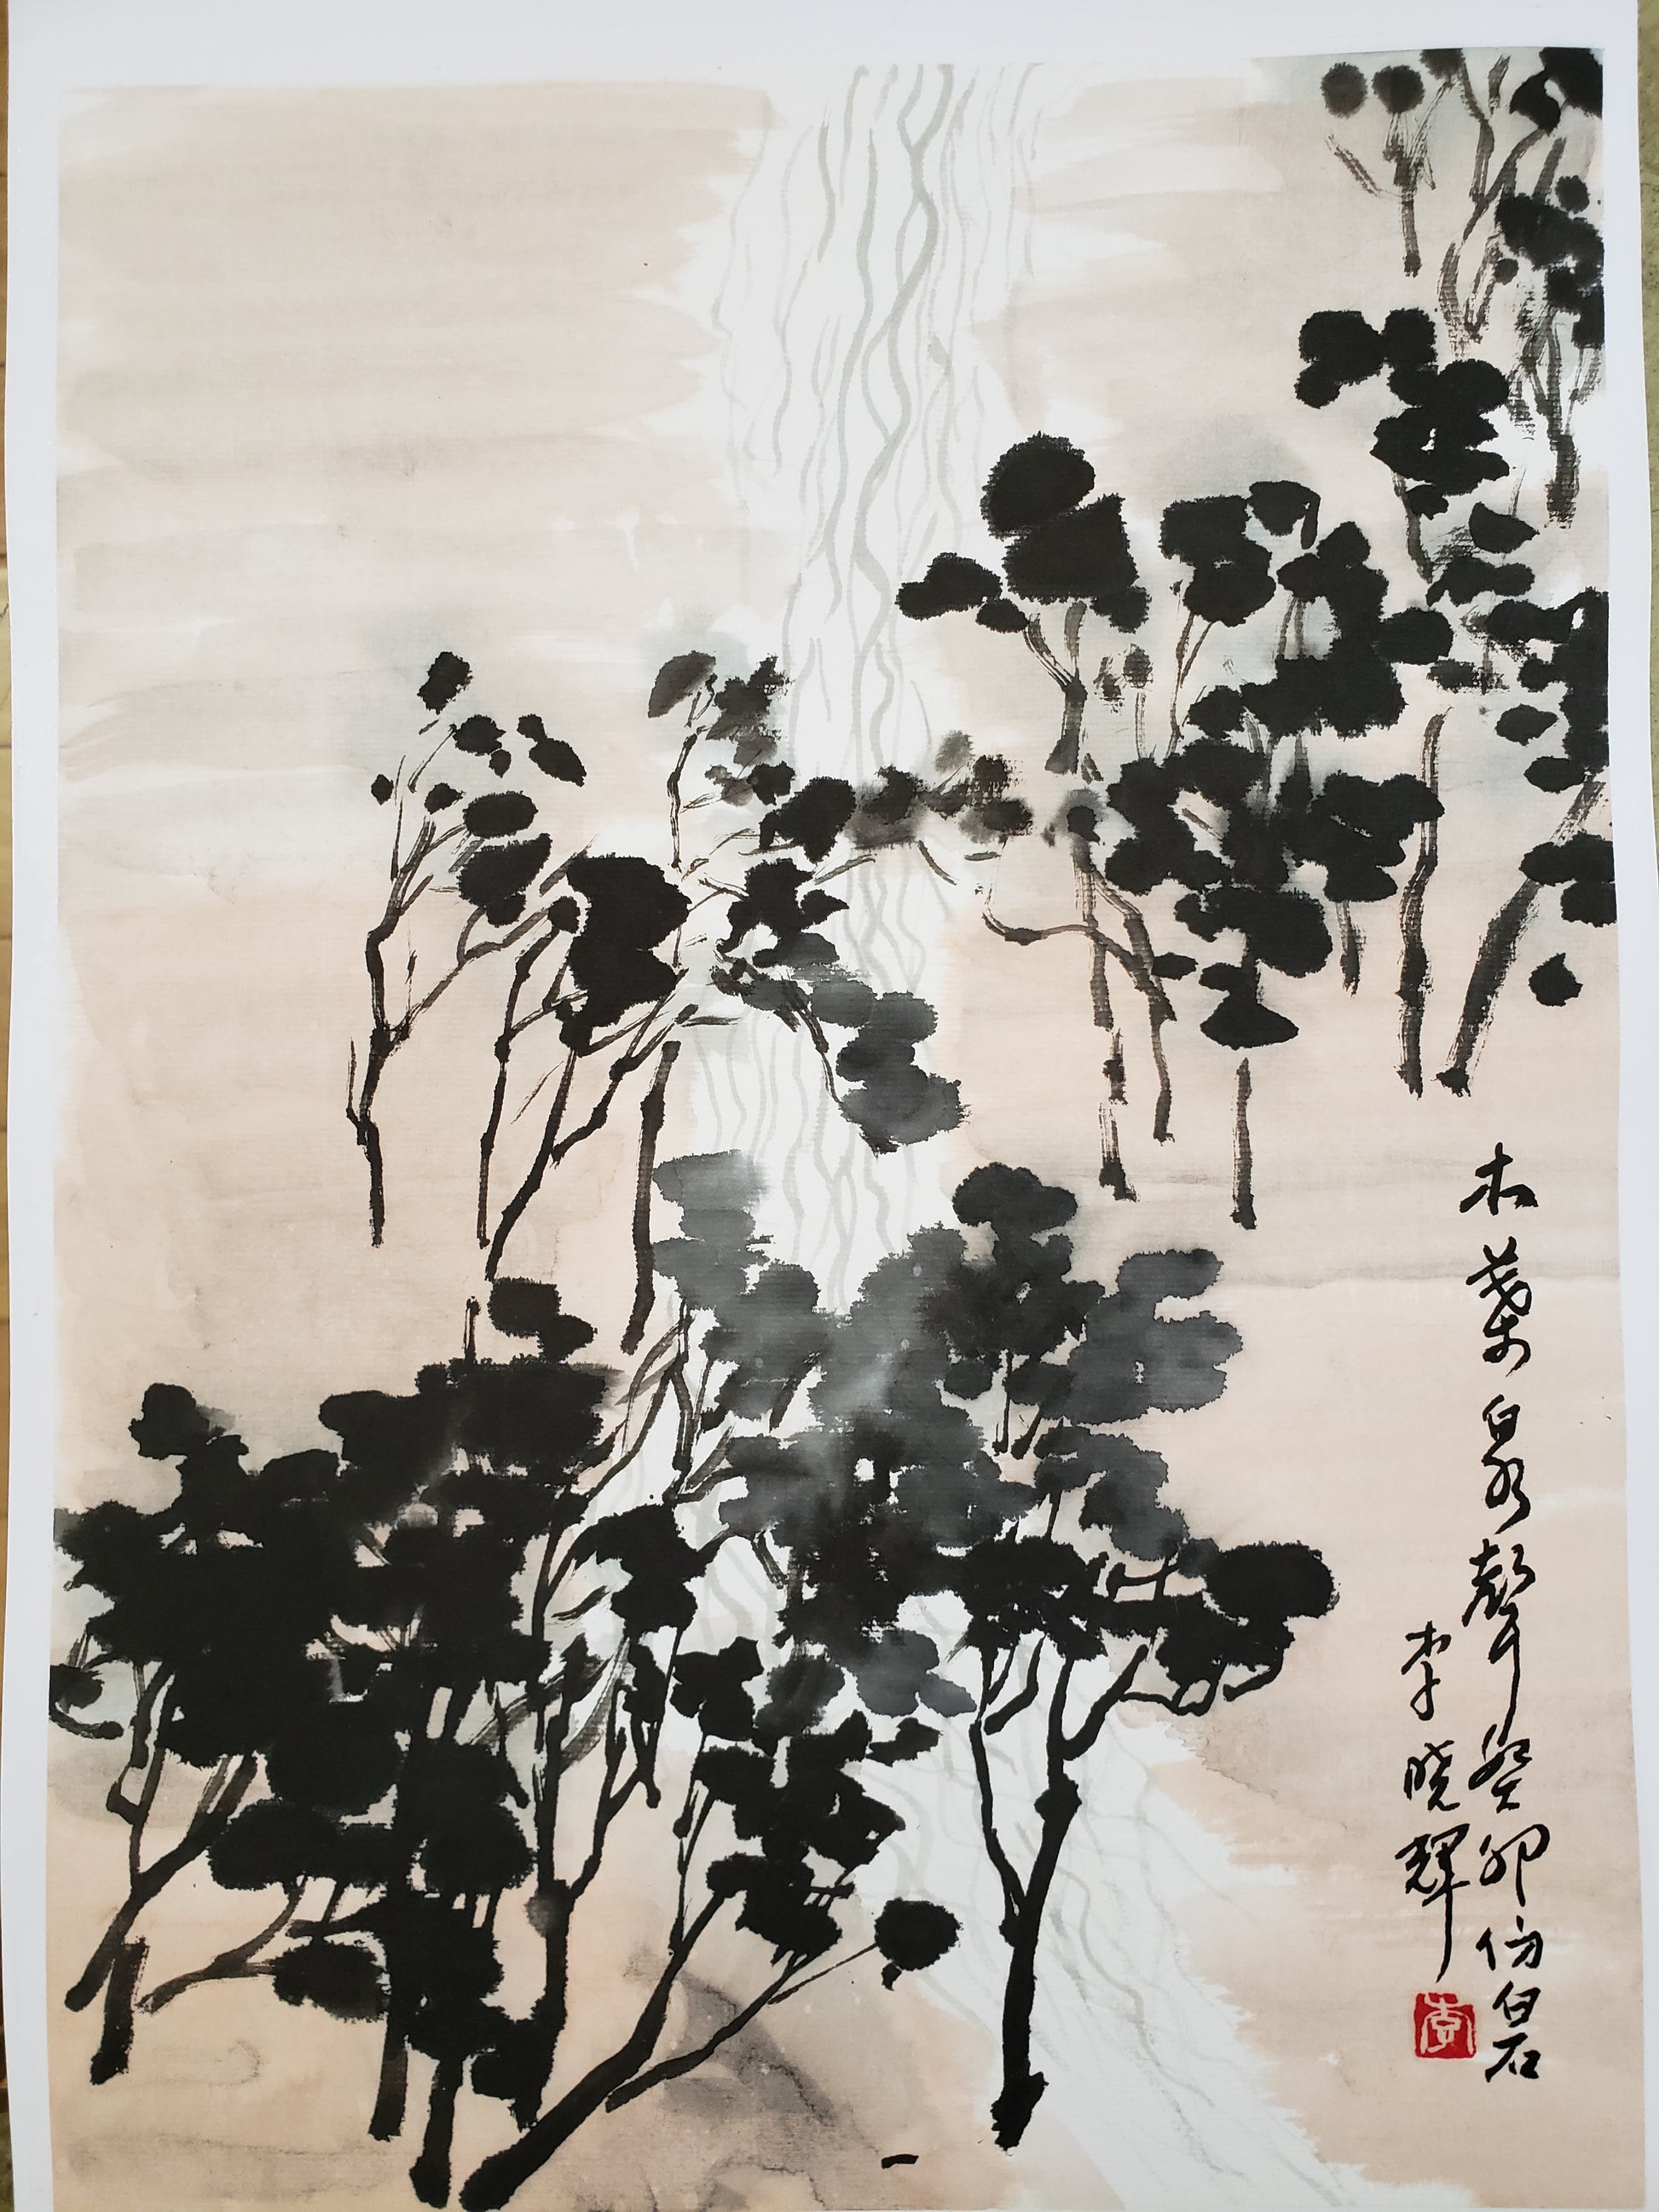 木葉泉聲癸卯仿白石
李曉輝
李